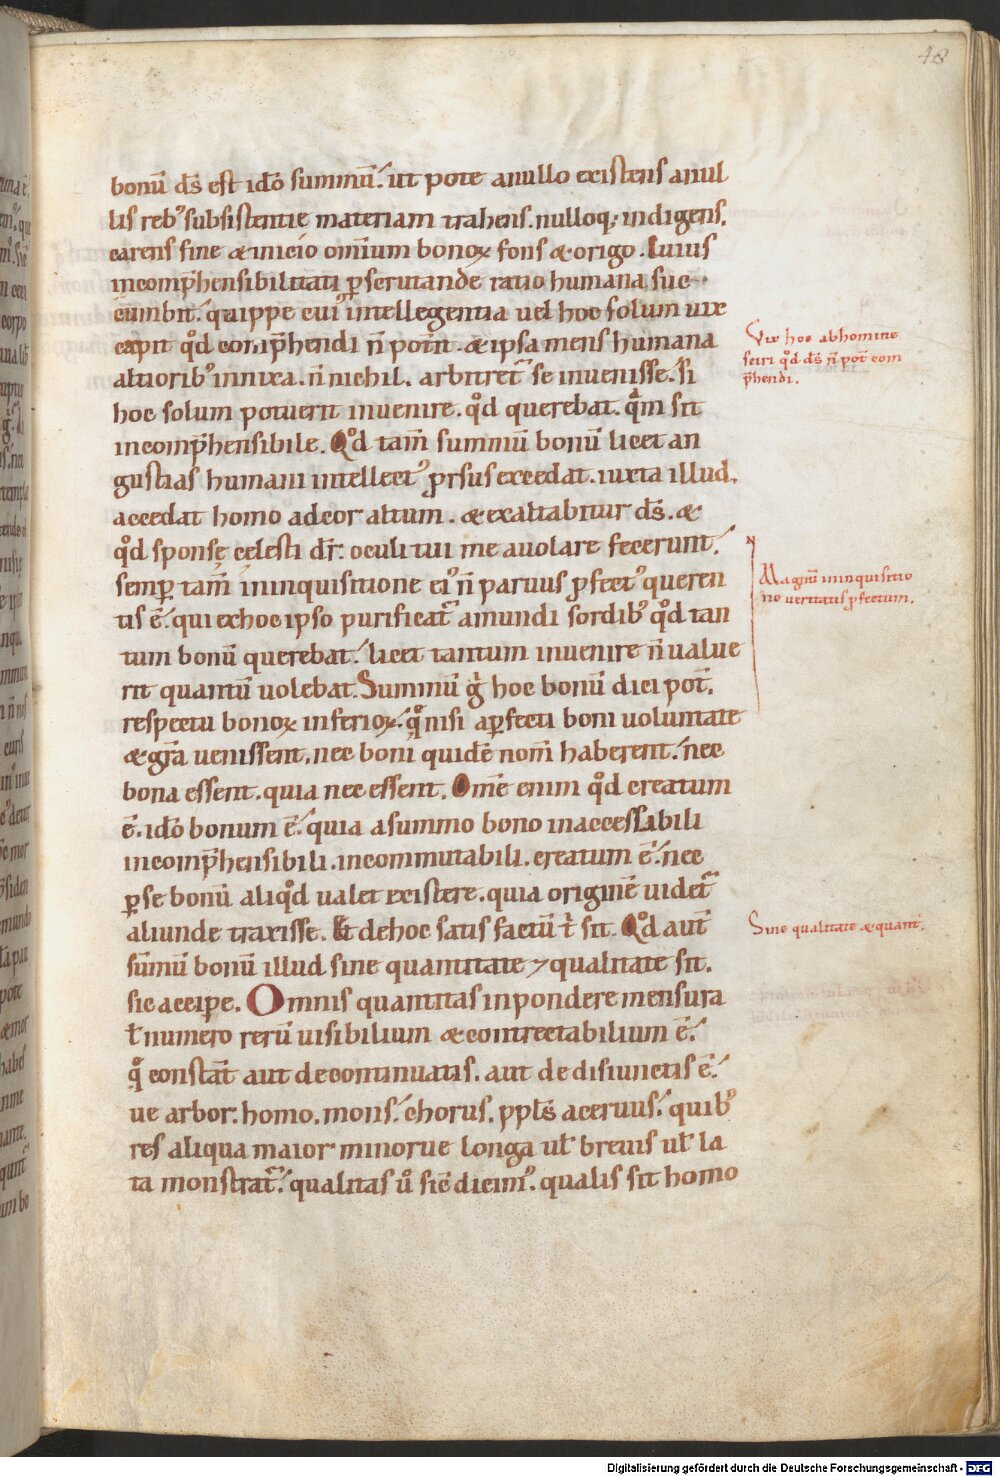 48
bonū d̄s est idō summū. ut pote anullo existens anul
lis reb᷒ subsistentie materiam trahens. nulloq; indigens.
carens fine & inicio omīum bonoꝝ fons & origo. Cuius
incomp̄hensibilitati ꝑscrutandę ratio humana suc
cumbit. quippe cui᷒ intellegentia uel hoc solum uix
capit qd̊ comp̄hendi n̄ potīt. & ipsa mens humana
altiorib᷒ innixa. n̄ nichil. arbitret᷑ se inuenisse. si
hoc solum potuerit inuenire. qd̊ querebat. qm̄ sit
incomp̄hensibile. Qd̊ tam̄ summū bonū licet an
gustias humani intellect᷒ ꝓrsus excedat. iuxta illud.
accedat homo adcor altum. & exaltabitur d̄s. &
qd̊ sponsę celesti dr̄. oculi tui me auolare fecerunt.
semꝑ tam̄ ininquisitione ei᷒ n̄ paruus ꝓfect᷒ queren
tis ē. qui exhoc ipso purificat᷑ amundi sordib᷒ qd̊ tan
tum bonū querebat. licet tantum inuenire n̄ ualue
rit quantū uolebat. Summū g̊ hoc bonū dici pot̄.
respectu bonoꝝ inferioꝝ. q̊ nisi aꝑfecti boni uoluntate
& gr̄a uenissent. nec boni quidē nom̄ haberent. nec
bona essent. quia nec essent. Om̄e enim qd̊ creatum
ē. idō bonum ē. quia asummo bono inaccessibili
incomp̄hensibili. incommutabili. creatum ē. nec
ꝑse bonū aliqd̊ ualet existere. quia originē uidet᷑
aliunde traxisse. Et dehoc satis factū t̊ sit. Qd̊ aut̄
sūmū bonū illud sine quantitate ⁊ qualitate sit.
sic accipe. Omnis quantitas inpondere mensura
ł numero rerū uisibilium & contrectabilium ē.
q̊ constat᷑ aut decontinuatis. aut dedisiunctis ē.
ue arbor. homo. mons. chorus. ppl̄s aceruus. quib᷒
res aliqua maior minorue longa ul̄ breuis ul̄ la
ta monstrat᷑. qualitas ů sic̄ dicim᷒. qualis sit homo
Vix hoc abhomine
sciri qd̊ d̄s n̄ pot̄ com
p̄hendi.
Magnū ininquisitio
ne ueritatis ꝓfectum.
Sine qualitate & quant̄.
Digitalisierung gefördert durch die Deutsche Forschungsgemeinschaft - DFG